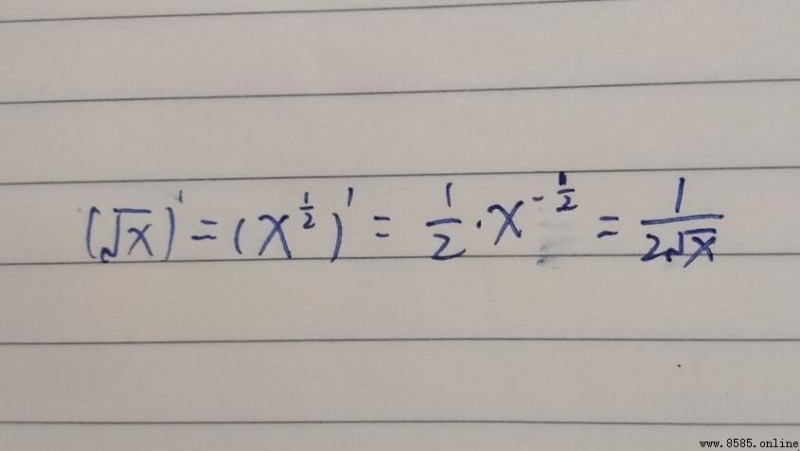 (√x)' = (x^{1/2})' = 1/2 · x^{-1/2} = 1/(2√x)
www.8585.online